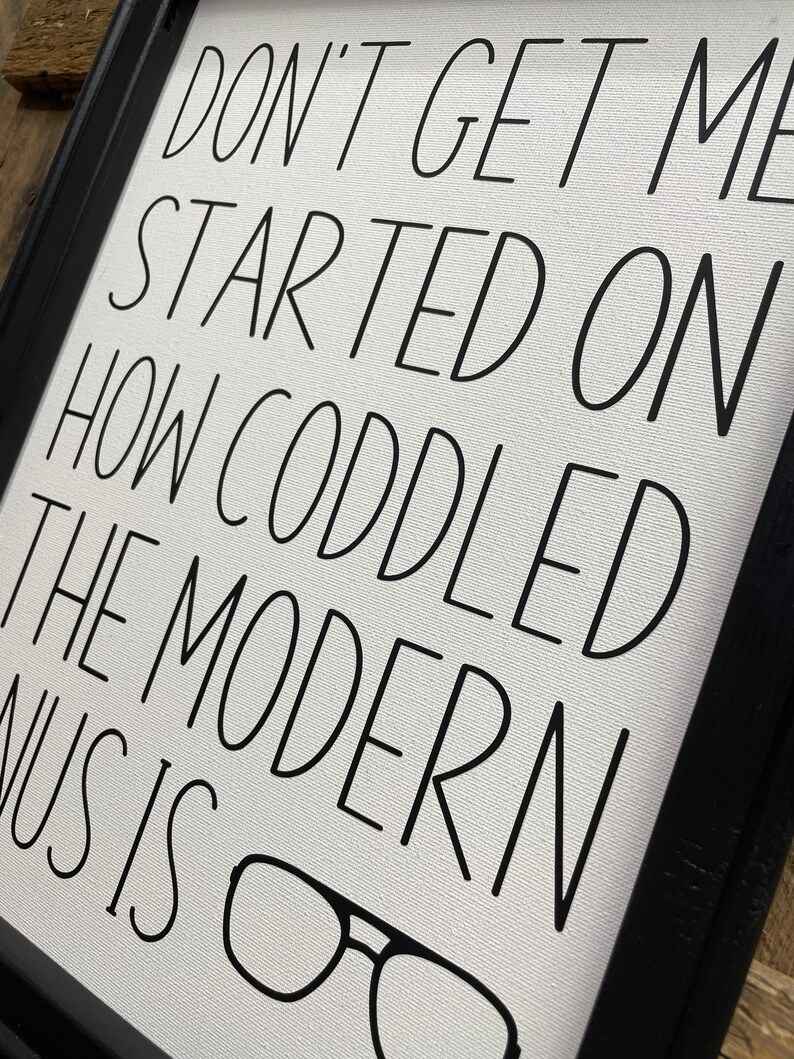 DON'T GET ME
STARTED ON
HOW CODDLED
THE MODERN
NUS IS